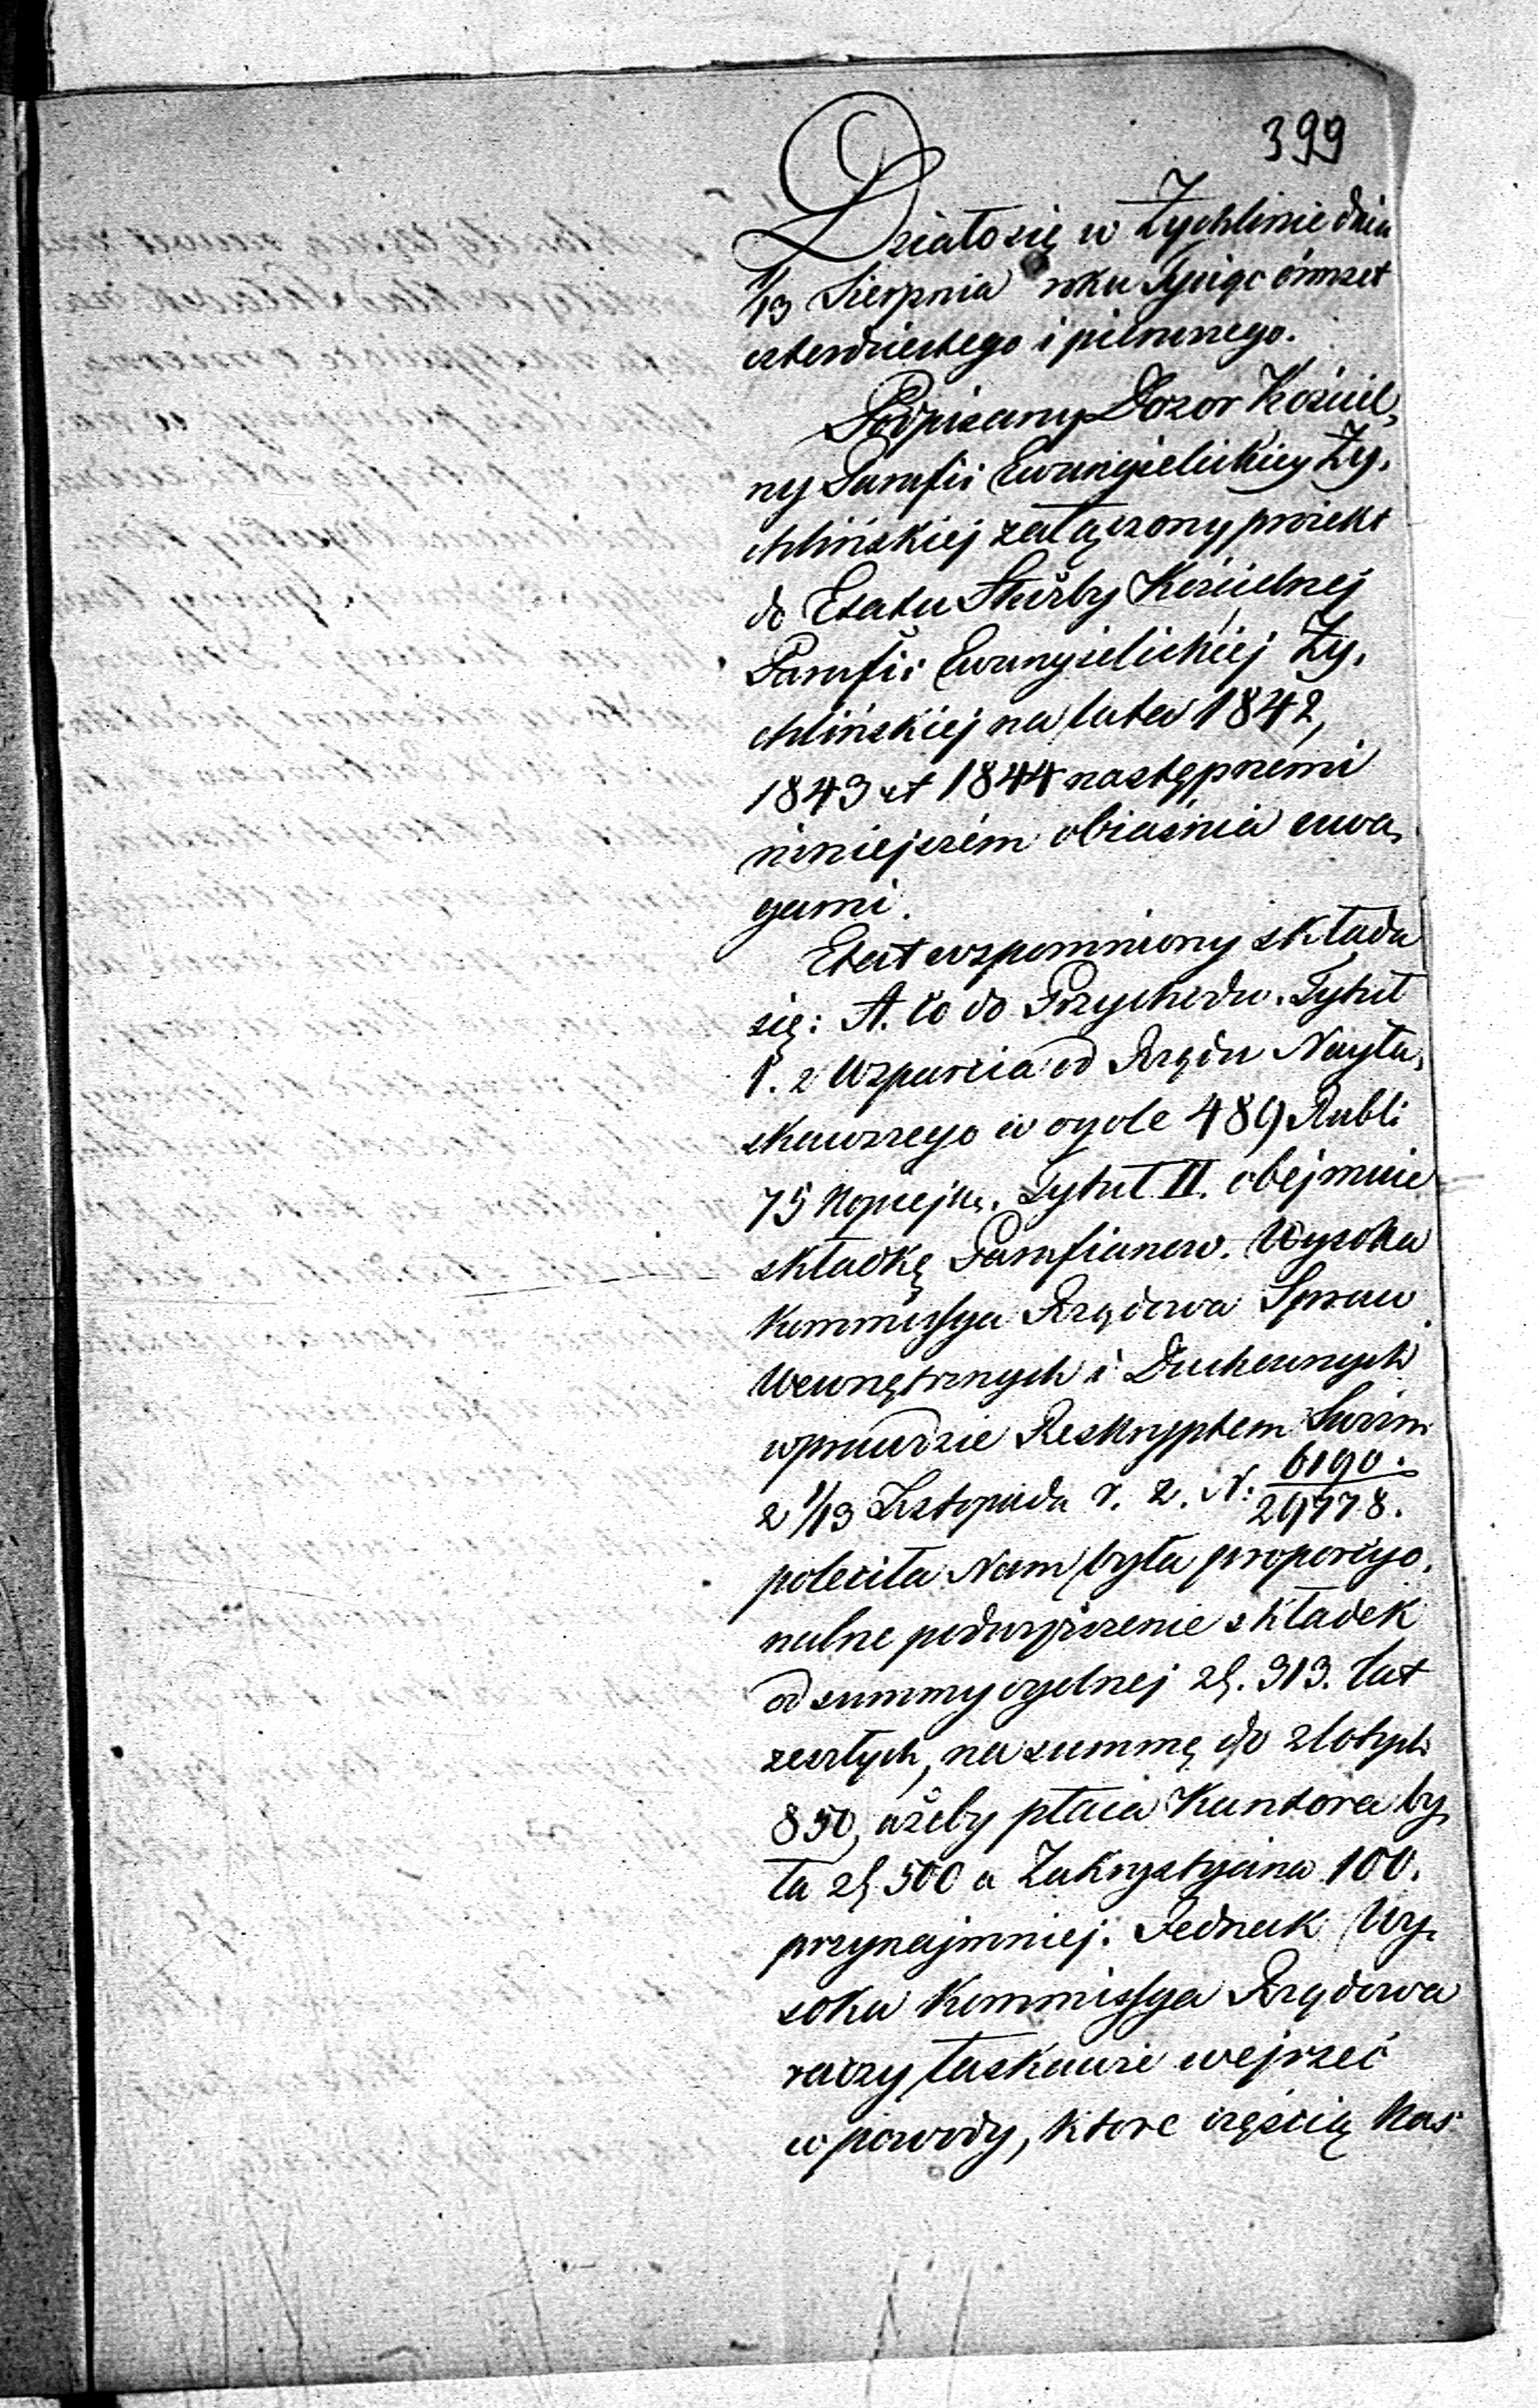 399
Działo się w Żychlinie dnia
1/13 Sierpnia roku Tysiąc ośmset
czterdziestego i pierwszego.
Podpisany Dozor Kościel,
ny Parafii Ewangielickiey Ży,
chlińskiej załączony proiekt
do Etatu Służby Kościelnej
Parafii Ewangielickiej Ży,
chlińskiej na lata 1842,
1843 et 1844 następnemi
niniejszém obiaśnia uwa,
gami.
Etat wspomniony składa
się: A. Co do Przychodu. Tytuł
I. z Wsparcia od Rządu Nayła,
skawszego w ogole 489 Rubli
75 Kopiejk. Tytuł II. obejmuie
składkę Parafianow. Wysoka
Kommissya Rządowa Spraw
Wewnętrznych i Duchownych
wprawdzie Reskryptem Swoim
z 1/13 Listopada r. z. N: 6190./29778.
poleciła Nam była proporcyo,
nalne podwyższenie składek
od summy ogolnej zł. 313. lat
zeszłych, na summę do złotych
850, ażeby płaca Kantora by,
ła zł 500 a Zakrystyana 100.
przynajmniej. Jednak Wy,
soka Kommissya Rządowa
raczy łaskawie wejrzeć
w powody, ktore częścią Nas